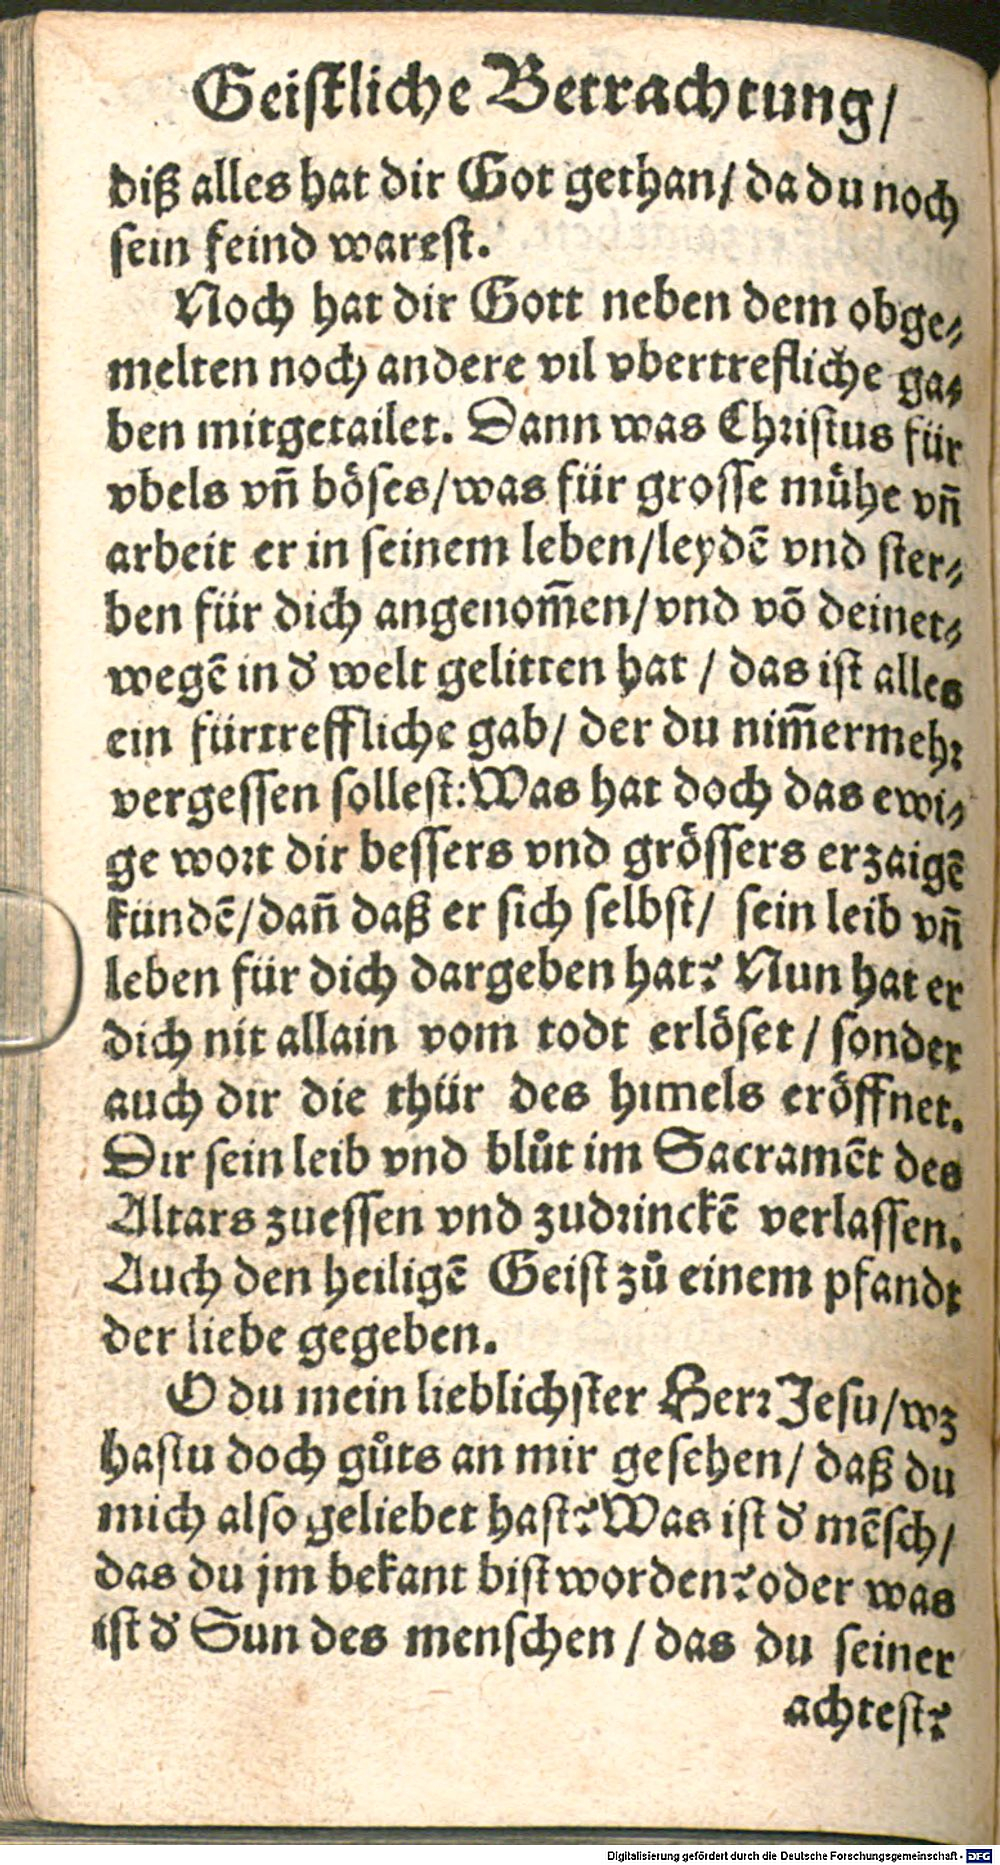 Geistliche Betrachtung/
diß alles hat dir Got gethan/ da du noch
sein feind warest.
Noch hat dir Gott neben dem obge⸗
melten noch andere vil vbertrefliche ga⸗
ben mitgetailet. Dann was Christus für
vbels vñ böses/was für grosse mühe vñ
arbeit er in seinem leben/leydẽ vnd ster⸗
ben für dich angenom̃en/vnd võ deinet⸗
wegẽ in d' welt gelitten hat / das ist alles
ein fürtreffliche gab/ der du nim̃ermehr
vergessen sollest: Was hat doch das ewi⸗
ge wort dir bessers vnd grössers erzaigẽ
kündẽ/dañ daß er sich selbst/ sein leib vñ
leben für dich dargeben hat? Nun hat er
dich nit allain vom todt erlöset / sonder
auch dir die thür des himels eröffnet.
Dir sein leib vnd blůt im Sacramẽt des
Altars zuessen vnd zudrinckẽ verlassen.
Auch den heiligẽ Geist zů einem pfandt
der liebe gegeben.
O du mein lieblichster Herr Jesu/wz
hastu doch gůts an mir gesehen/ daß du
mich also geliebet hast? Was ist d' mẽsch/
das du jm bekant bist worden? oder was
ist d' Sun des menschen / das du seiner
achtest?
Digitalisierung gefördert durch die Deutsche Forschungsgemeinschaft - DFG